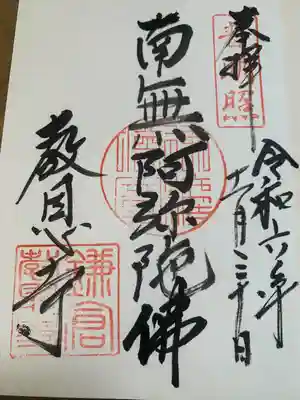 奉拝
令和六年
十一月二十日
南無阿弥陀佛
教恩寺
鎌倉